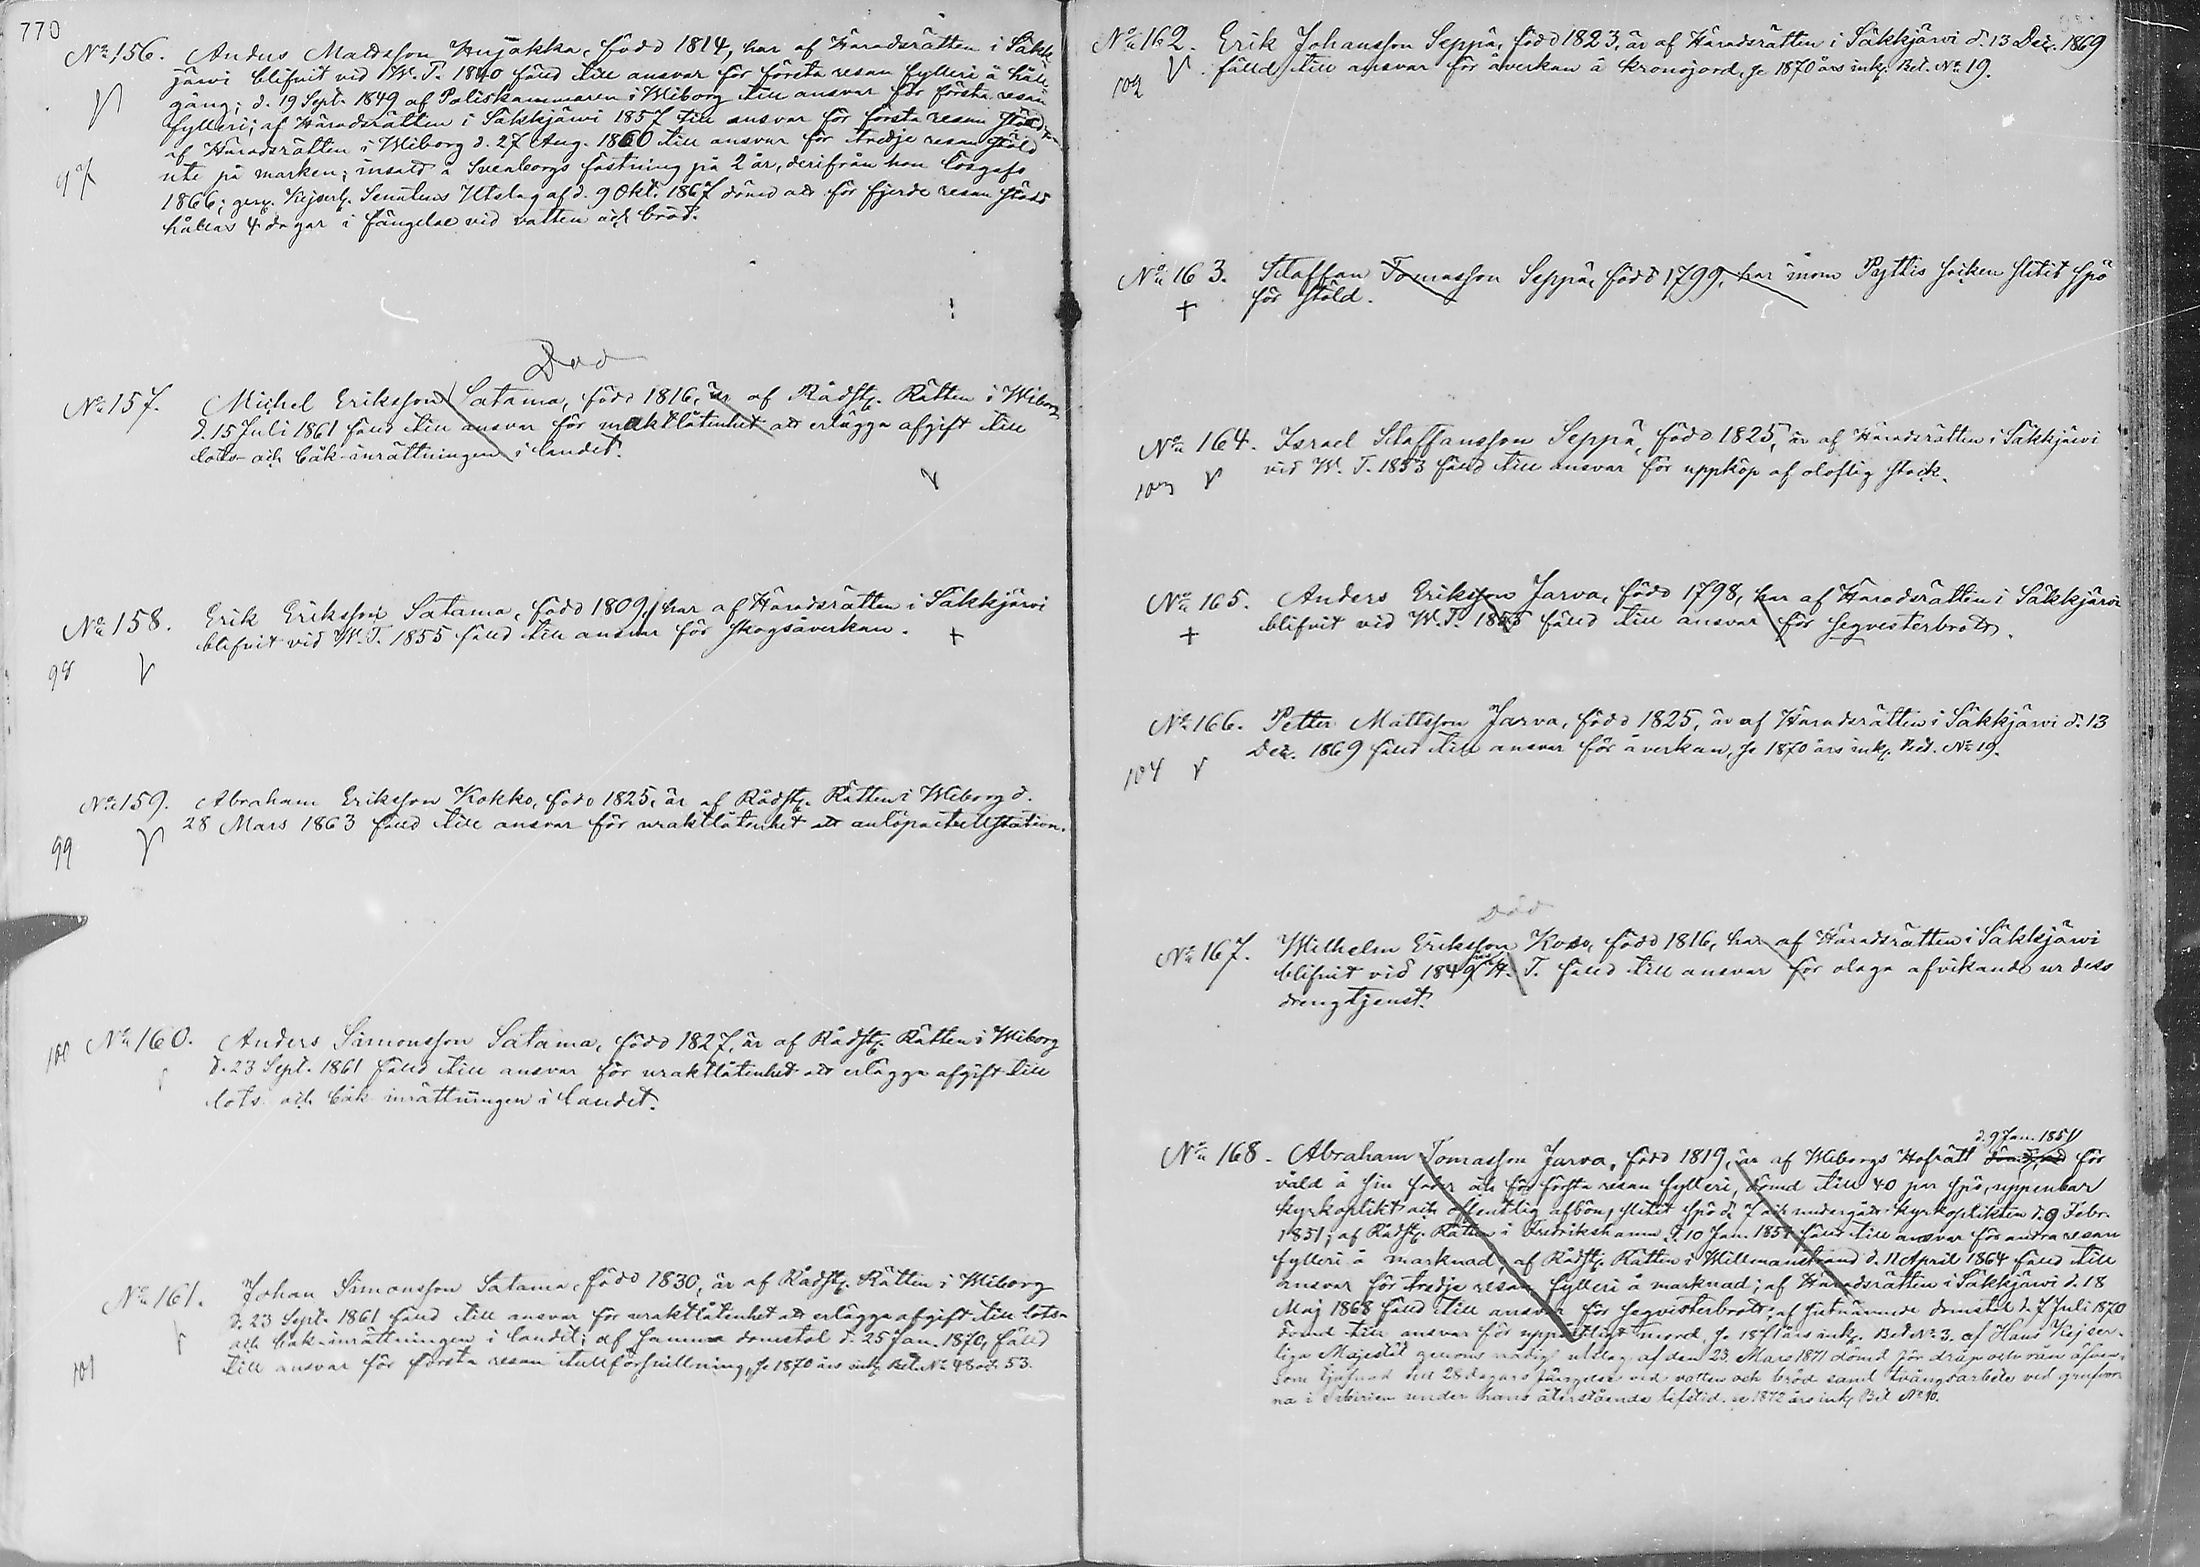 770
No 156. Anders Mattsson Hujakka, född 1814, har af Häradsrätten i Säkk-
järvi blifvit vid W. T. 1840 fälld till ansvar för första resan fylleri å häll-
gång; d. 19 Sept. 1849 af Poliskammaren i Wiborg till ansvar för första resan
fylleri; af Häradsrätten i Säkkjärvi 1857 till ansvar för första resan stöld;
af Häradsrätten i Wiborg d. 27 Aug. 1860 till ansvar för tredje resan stöld
97 ute på marken; insatt å Sveaborgs fästning på 2 år, derifrån han lösgafs
1866; gen. Kejserl. Senatens Utslag af d. 9 Okt. 1867 dömd att för fjerde resan stöld
hållas 4 dagar i fängelse vid vatten och bröd.
Död
No 157. Michel Eriksson Satama, född 1816, är af Rådst. Rätten i Wiborg
d. 15 Juli 1861 fälld till ansvar för uraktlåtenhet att erlägga afgift till
lots- och båk-inrättningen i landet.
No 158. Erik Eriksson Satama, född 1809, har af Häradsrätten i Säkkjärvi
blifvit vid W. T. 1855 fälld till ansvar för skogsåverkan. +
98
No 159. Abraham Eriksson Kokko, född 1825, är af Rådst. Rätten i Wiborg d.
28 Mars 1863 fälld till ansvar för uraktlåtenhet att anlöpa tullstation.
99
100 No 160. Anders Simonsson Satama, född 1827, är af Rådst. Rätten i Wiborg
d. 23 Sept. 1861 fälld till ansvar för uraktlåtenhet att erlägga afgift till
lots- och båk-inrättningen i landet.
No 161. Johan Simonsson Satama, född 1830, är af Rådst. Rätten i Wiborg
d. 23 Sept. 1861 fälld till ansvar för uraktlåtenhet att erlägga afgift till lots-
och båk-inrättningen i landet; af samma domstol d. 25 Jan. 1870, fälld
101 till ansvar för första resan tullförsnillning, se 1870 års ink. Bet. No 48 och 53.
No 162. Erik Johansson Seppä, född 1823, är af Häradsrätten i Säkkjärvi d. 13 Dec. 1869
102 fälld till ansvar för åverkan å kronojord, se 1870 års ink. Bet. No 19.
No 163. Staffan Tomasson Seppä, född 1799, har inom Pyttis socken slitit spö
+ för stöld.
No 164. Israel Staffansson Seppä, född 1825, är af Häradsrätten i Säkkjärvi
103 vid W. T. 1853 fälld till ansvar för uppköp af oloflig stock.
No 165. Anders Eriksson Jarva, född 1798, har af Häradsrätten i Säkkjärvi
+ blifvit vid W. T. 1855 fälld till ansvar för seqvesterbrott.
No 166. Petter Mattsson Jarva, född 1825, är af Häradsrätten i Säkkjärvi d. 13
Dec. 1869 fälld till ansvar för åverkan, se 1870 års ink. Bet. No 19.
104
Död
No 167. Wilhelm Eriksson Koso, född 1816, har af Häradsrätten i Säkkjärvi
blifvit vid 1849 H. T. fälld till ansvar för olaga afvikande ur dess
drengtjenst.
d. 9 Jan. 1851
No 168. Abraham Tomasson Jarva, född 1819, är af Wiborgs Hofrätt för
våld å sin fader och för första resan fylleri, dömd till 40 par spö, uppenbar
kyrkoplikt och offentlig afbön, slitit spö d. 7 och undergått kyrkoplikten d. 9 Febr.
1851; af Rådst. Rätten i Fredrikshamn d. 10 Jan. 1854 fälld till ansvar för andra resan
fylleri å marknad, af Rådst. Rätten i Willmanstrand d. 11 April 1864 fälld till
ansvar för tredje resan fylleri å marknad; af Häradsrätten i Säkkjärvi d. 18
Maj 1868 fälld till ansvar för seqvesterbrott; af sistnämnde domstol d. 7 Juli 1870
dömd till ansvar för uppsåtligt mord, se 1871 års ink. Bet No 3. af Hans Kejser-
liga Majestät genom nådigt utslag af den 23. Mars 1871 dömd för dråp och rån
som till 28 dagars fängelse vid vatten och bröd samt tvångsarbete ved grufvor-
na i Sibirien under hans återstående lifstid. se 1872 års ink. Bet No 10.